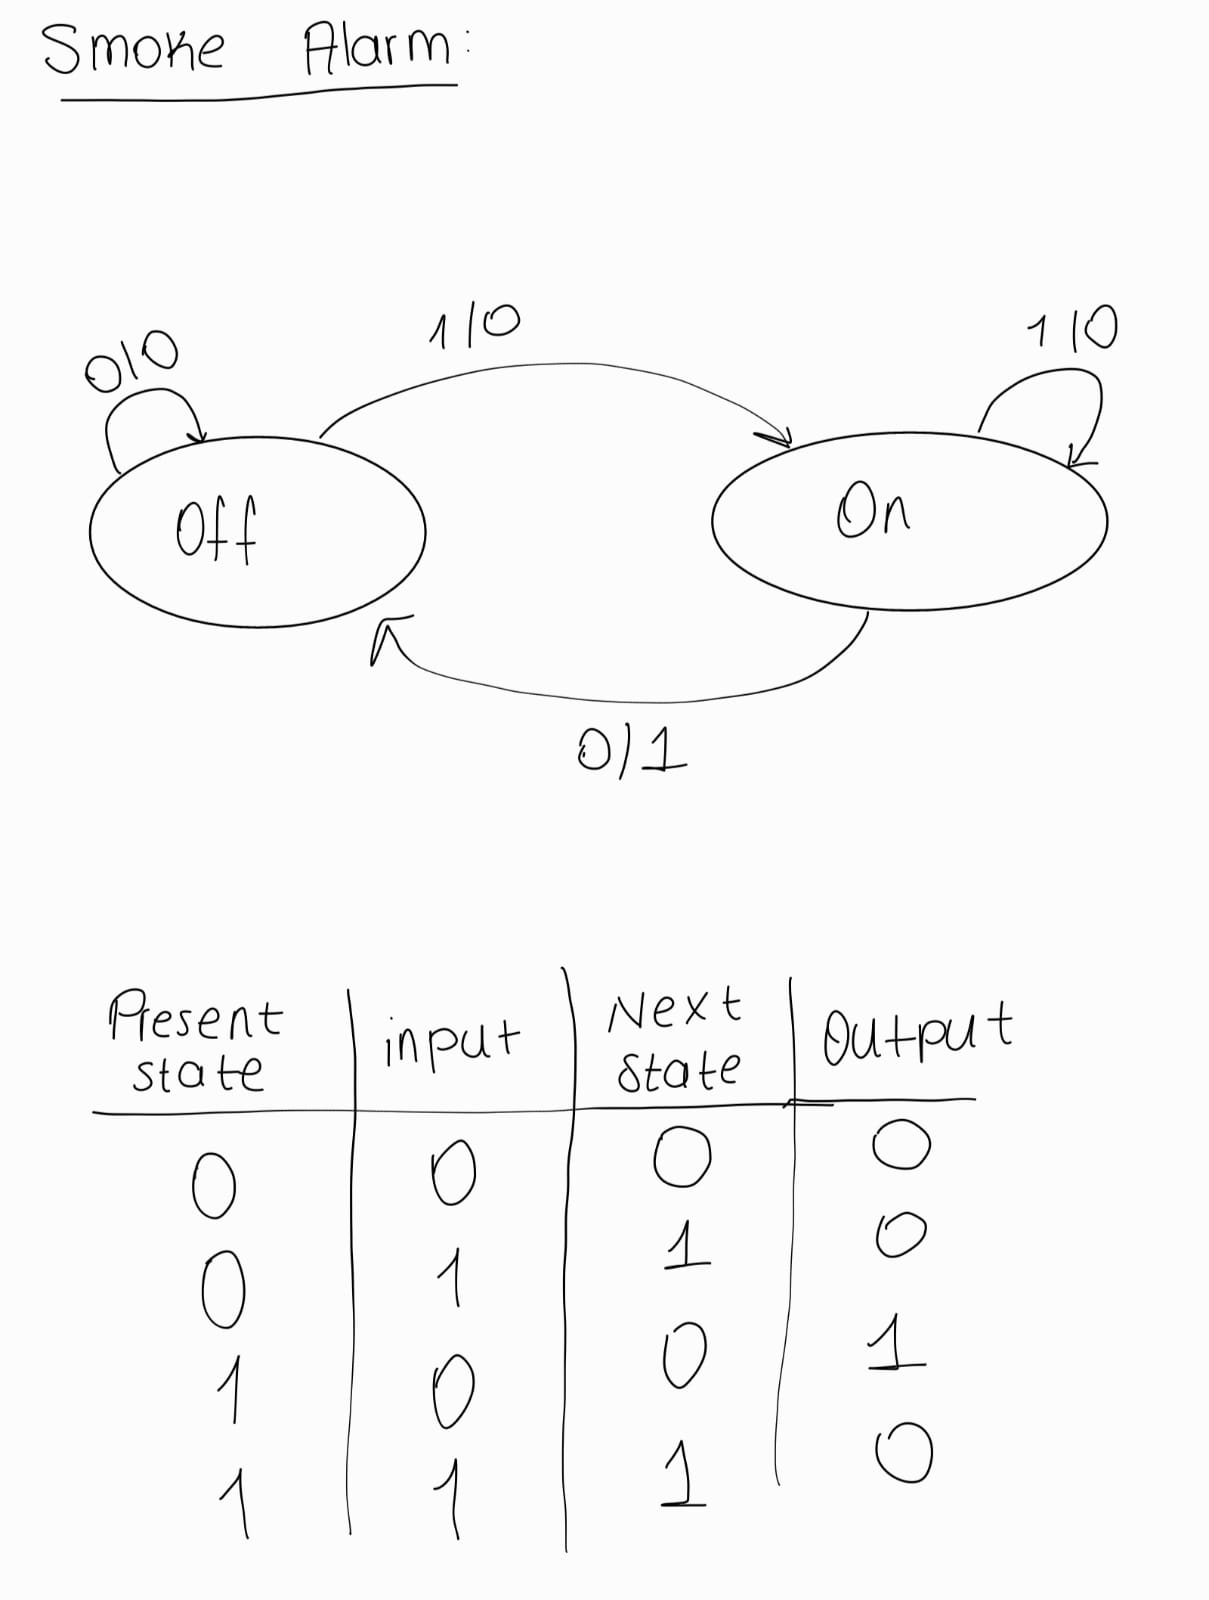 Smoke Alarm:
0/0
1/0
1/0
Off
On
0/1
Present state | input | Next state | Output
0 0 0 0
0 1 1 0
1 0 0 1
1 1 1 0